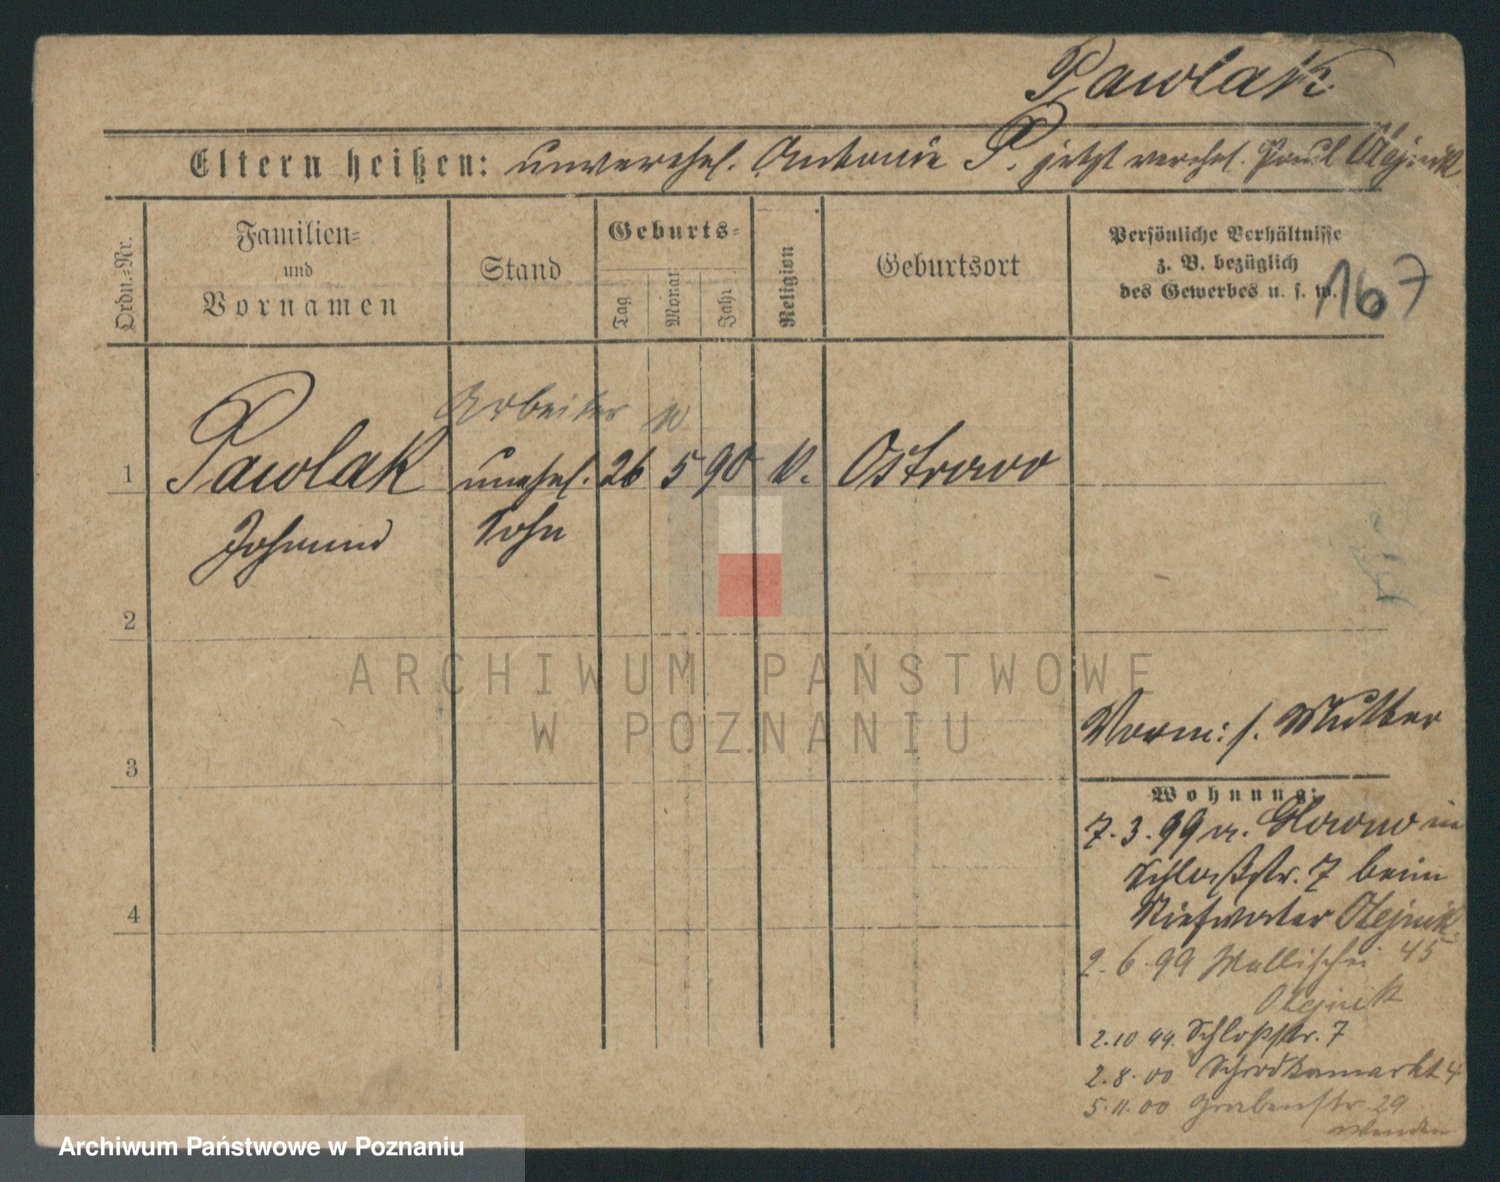 Pawlak
Eltern heißen: unverehel. Antonie P. jetzt verehel. Paul Olejnik
Ordn.=Nr.
Familien=
und
Vornamen
Stand
Geburts=
Tag
Monat
Jahr
Religion
Geburtsort
Persönliche Verhältnisse
z. B. bezüglich
des Gewerbes u. s. w.
167
Arbeiter
1 Pawlak unehel. 26 5 90 k. Ostrowo
Johann Sohn
2
3
4
Vorm: s. Mutter
Wohnung:
7.3.99 v. in
Schloßstr. 7 beim
Stiefvater Olejnik
2.6.99 Wallischei 45
Olejnik
2.10 99. Schloßstr. 7
2.8.00 Schrodkamarkt 4
5.11.00 Grabenstr. 29
wenden
ARCHIWUM PAŃSTWOWE
W POZNANIU
Archiwum Państwowe w Poznaniu